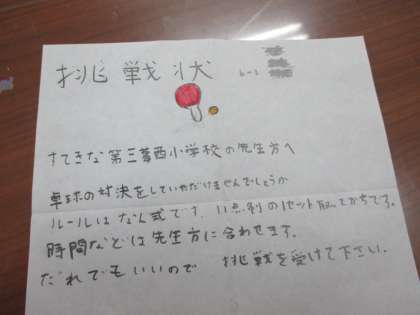 挑戦状
6-2
すてきな第三葛西小学校の先生方へ
卓球の対決をしていただけませんでしょうか
ルールはなん式です。11点制の1セット取ってかちです。
時間などは先生方に合わせます。
だれでもいいので 挑戦を受けて下さい.